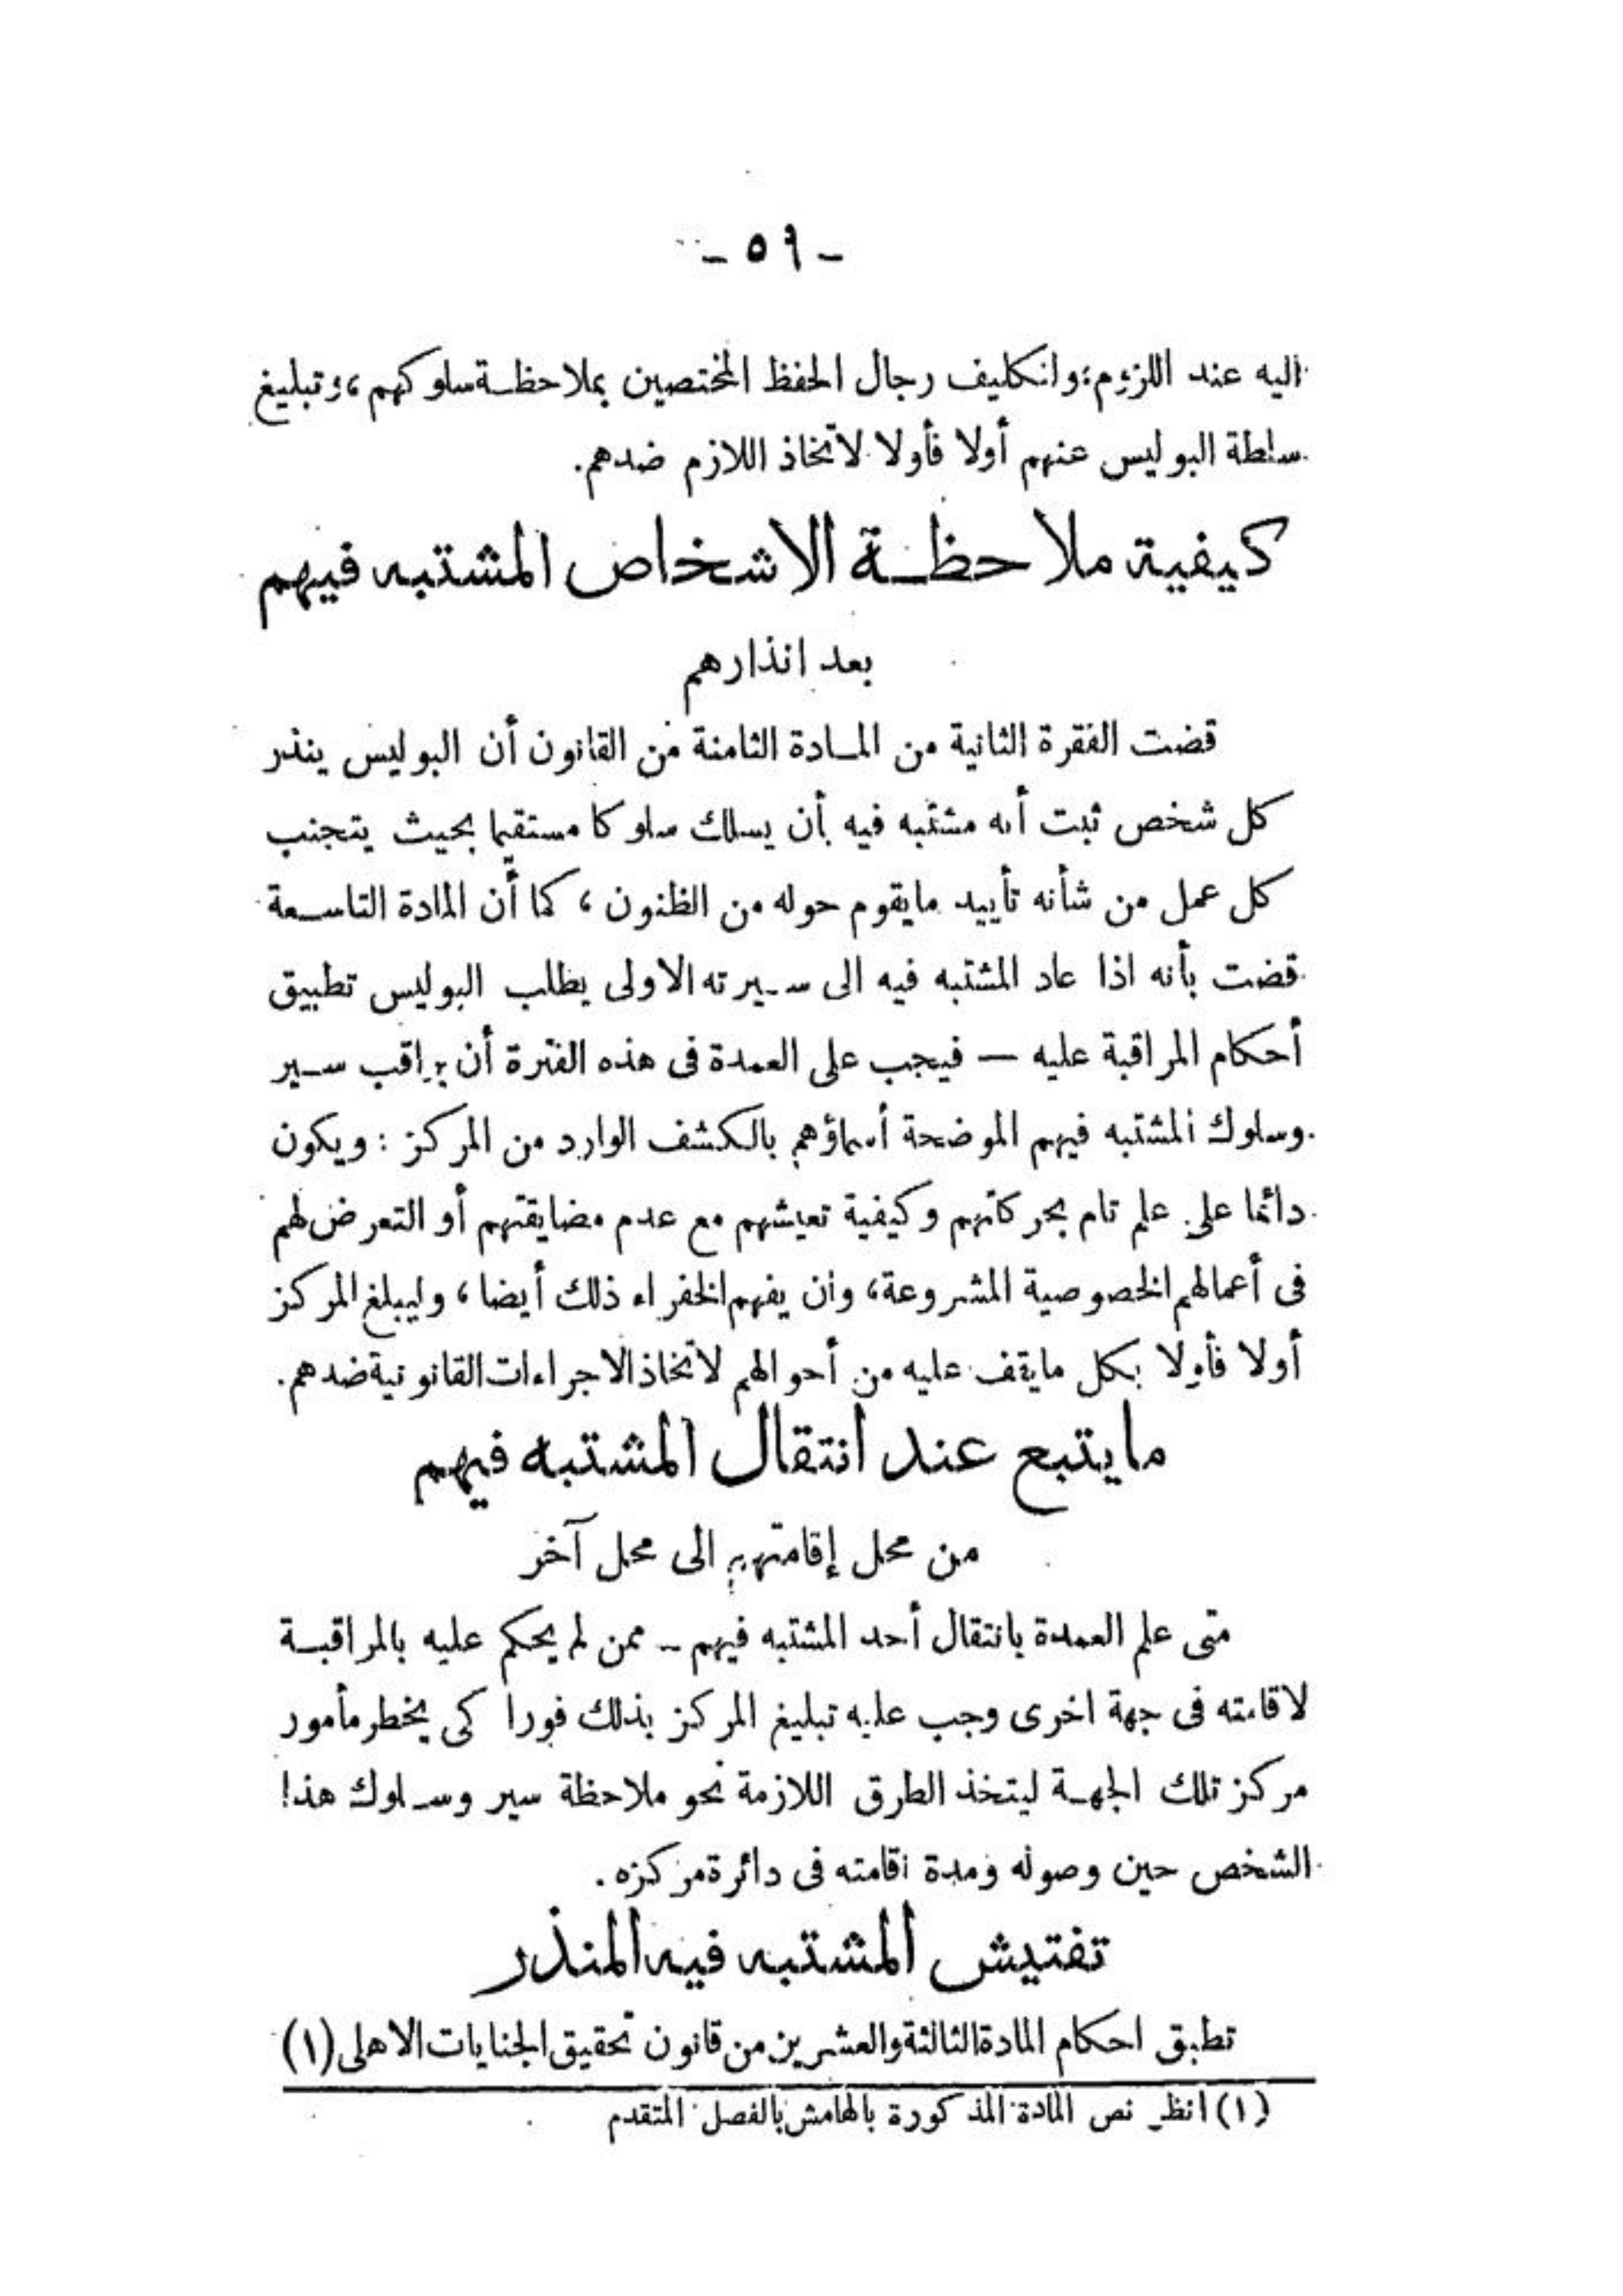 - ٥٩ -
اليه عند اللزوم، وانكليف رجال الحفظ المختصين بملاحظة سلوكهم، وتبليغ
سلطة البوليس عنهم أولا فأولا لاتخاذ اللازم ضدهم.
كيفية ملاحظة الاشخاص المشتبه فيهم
بعد انذارهم
قضت الفقرة الثانية من المادة الثامنة من القانون أن البوليس ينذر
كل شخص ثبت أنه مشتبه فيه بأن يسلك سلوكا مستقيما بحيث يتجنب
كل عمل من شأنه تأييد مايقوم حوله من الظنون، كما أن المادة التاسعة
قضت بأنه اذا عاد المشتبه فيه الى سيرته الاولى يطلب البوليس تطبيق
أحكام المراقبة عليه — فيجب على العمدة فى هذه الفترة أن يراقب سير
وسلوك المشتبه فيهم الموضحة أسماؤهم بالكشف الوارد من المركز : ويكون
دائما على علم تام بحركاتهم وكيفية تعيشهم مع عدم مضايقتهم أو التعرض لهم
فى أعمالهم الخصوصية المشروعة، وان يفهم الخفراء ذلك أيضا، وليبلغ المركز
أولا فأولا بكل مايقف عليه من أحوالهم لاتخاذ الاجراءات القانونية ضدهم.
مايتبع عند انتقال المشتبه فيهم
من محل إقامتهم الى محل آخر
متى علم العمدة بانتقال أحد المشتبه فيهم - ممن لم يحكم عليه بالمراقبة
لاقامته فى جهة اخرى وجب عليه تبليغ المركز بذلك فورا كى يخطر مأمور
مركز تلك الجهة ليتخذ الطرق اللازمة نحو ملاحظة سير وسلوك هذا
الشخص حين وصوله ومدة اقامته فى دائرة مركزه.
تفتيش المشتبه فيه المنذر
تطبق احكام المادة الثالثة والعشرين من قانون تحقيق الجنايات الاهلى (١)
(١) انظر نص المادة المذكورة بالهامش بالفصل المتقدم